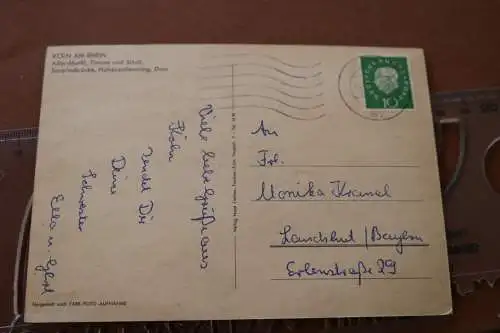 KÖLN AM RHEIN
Alter Markt, Tünnes und Schäl,
Severinsbrücke, Hohenzollernring, Dom
Viele liebe Grüße aus
Köln
sendet Dir
Deine
Schwester
Ella u.
10
An
Frl.
Monika
Landshut / Bayern
Erlenstraße 29
Hergestellt nach FARB-FOTO-AUFNAHME